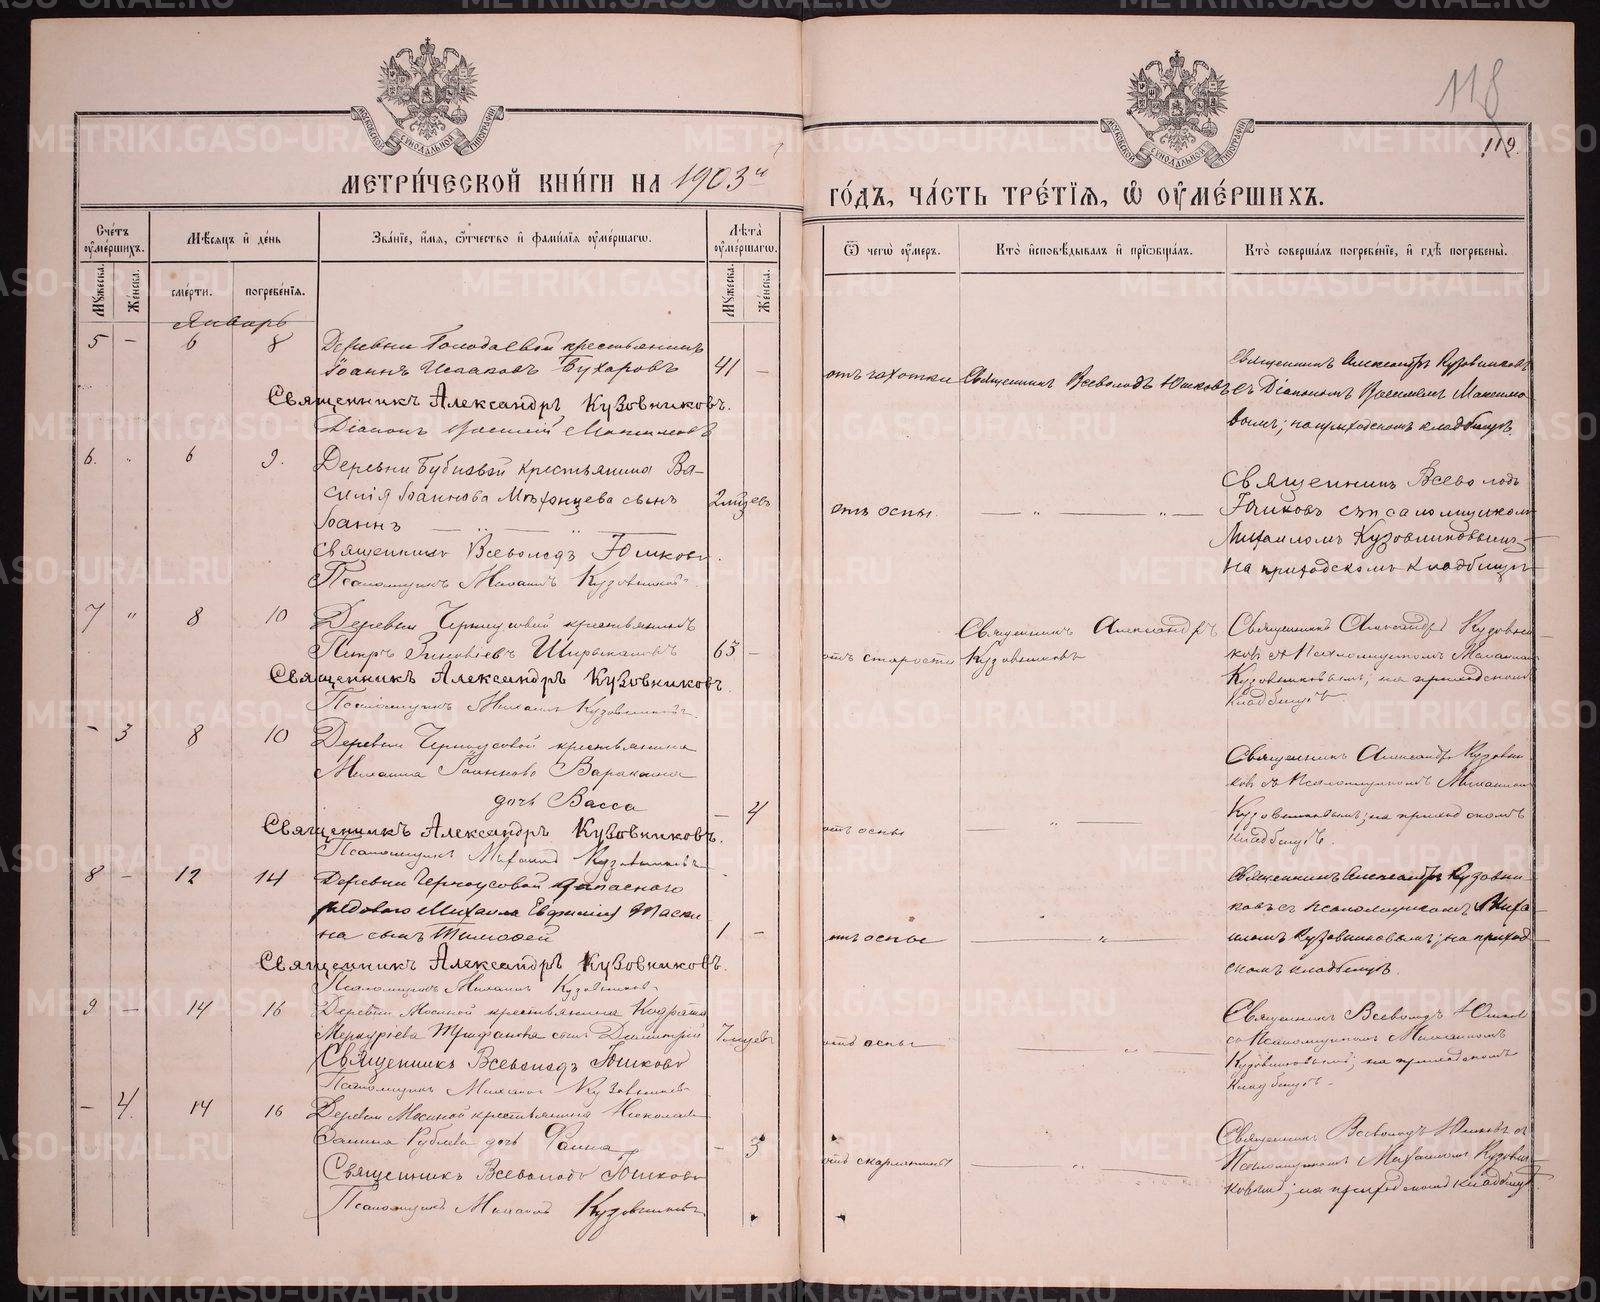 118
119.
МЕТРИЧЕСКОЙ КНИГИ НА 1903й
ГОДЪ, ЧАСТЬ ТРЕТІЯ, Ѡ ОУМЕРШИХЪ.
Счетъ оумершихъ.
Мѣсяцъ и день
Званіе, имя, ѿчество и фамилія оумершагѡ.
Лѣта оумершагѡ.
Ѿ чегѡ оумеръ.
Кто исповѣдывалъ и пріѡбщалъ.
Кто совершалъ погребеніе, и гдѣ погребены.
Мужеска.
Женска.
смерти.
погребенія.
Мужеска.
Женска.
Январь
5 – 6 8 Деревни крестьянинъ
Іоаннъ Исааковъ Бухаровъ 41 –
отъ чахотки Священникъ Всеволодъ Юшковъ
Священникъ Александръ Кузовниковъ
съ Діакономъ Василіемъ Максимо
вымъ; на приходскомъ кладбищѣ
Священникъ Александръ Кузовниковъ.
Діаконъ Василій Максимовъ
6. „ 6 9. Деревни крестьянина Ва-
силія Іоаннова сынъ 2 мцевъ
Іоаннъ
отъ оспы. — „ — „ —
Священникъ Всеволодъ
Юшковъ съ псаломщикомъ
Михаиломъ Кузовниковымъ
на приходскомъ кладбищѣ
Священникъ Всеволодъ Юшковъ.
Псаломщикъ Михаилъ Кузовниковъ.
7 „ 8 10 Деревни Черноусовой крестьянинъ
Петръ Зиновіевъ 63 –
отъ старости Священникъ Александръ
Кузовниковъ
Священникъ Александръ Кузовни
ковъ съ Псаломщикомъ Михаиломъ
Кузовниковымъ; на приходскомъ
кладбищѣ.
Священникъ Александръ Кузовниковъ.
Псаломщикъ Михаилъ Кузовниковъ.
– 3 8 10 Деревни Черноусовой крестьянина
Михаила Іоаннова Варакина
дочь Васса – 4
отъ оспы — „ —
Священникъ Александръ Кузовни
ковъ съ Псаломщикомъ Михаиломъ
Кузовниковымъ; на приходскомъ
кладбищѣ.
Священникъ Александръ Кузовниковъ.
Псаломщикъ Михаилъ Кузовниковъ
8 – 12 14 Деревни Черноусовой запаснаго
рядового Михаила Таски
на сынъ Тимофей 1 –
отъ оспы — „ —
Священникъ Александръ Кузовни
ковъ съ псаломщикомъ Миха
иломъ Кузовниковымъ; на приход
скомъ кладбищѣ.
Священникъ Александръ Кузовниковъ.
Псаломщикъ Михаилъ Кузовниковъ
9 – 14 16 Деревни Мосиной крестьянина
Меркуріева Трифанова сынъ Димитрій 7 мцевъ
отъ оспы — „ —
Священникъ Всеволодъ Юшковъ
съ Псаломщикомъ Михаиломъ
Кузовниковымъ; на приходскомъ
кладбищѣ.
Священникъ Всеволодъ Юшковъ
Псаломщикъ Михаилъ Кузовниковъ
– 4. 14 16 Деревни Мосиной крестьянина Николая
Рублева дочь Фаина – 3
отъ скарлатины — „ —
Священникъ Всеволодъ Юшковъ съ
Псаломщикомъ Михаиломъ Кузовни
ковымъ; на приходскомъ кладбищѣ
Священникъ Всеволодъ Юшковъ
Псаломщикъ Михаилъ Кузовниковъ
METRIKI.GASO-URAL.RU